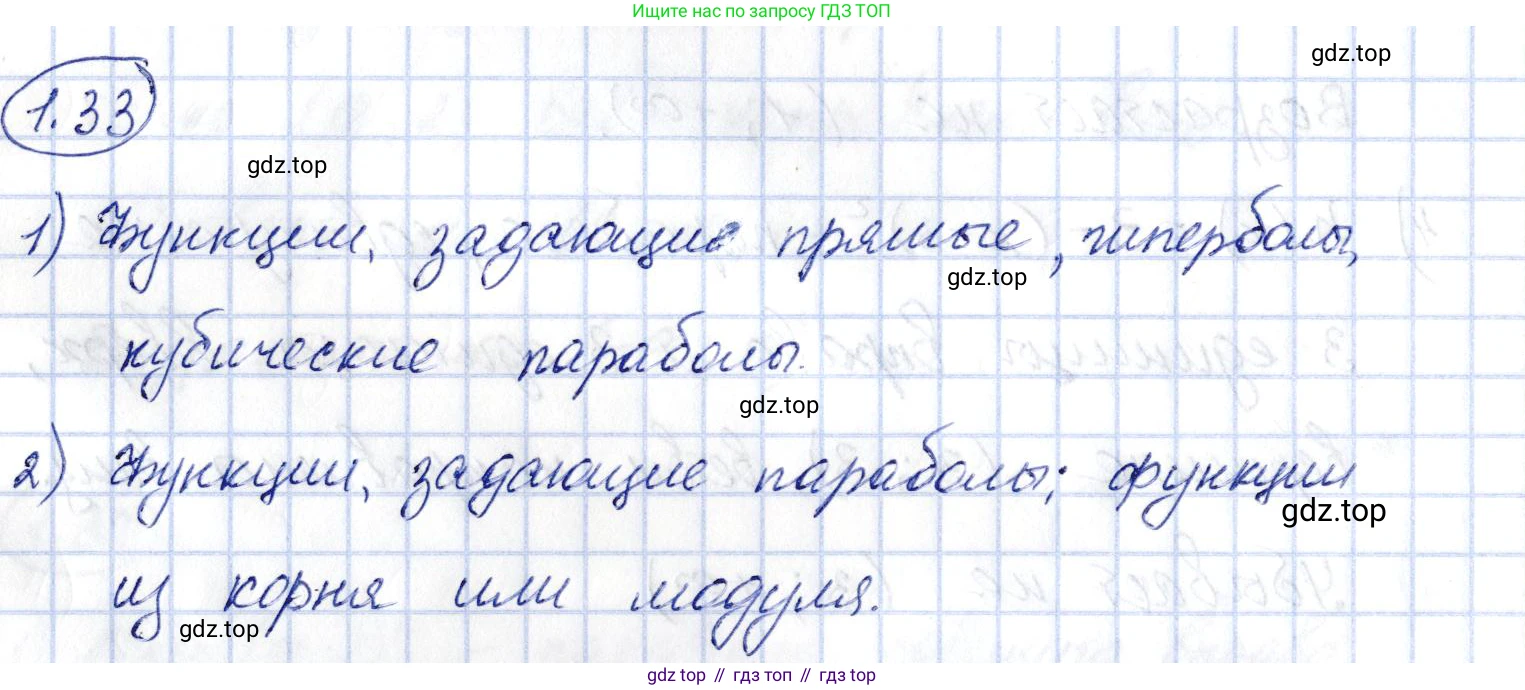 Ищите нас по запросу ГДЗ ТОП
gdz.top
1.33
gdz.top
1) Функции, задающие прямые, гиперболы,
gdz.top
кубические параболы.
gdz.top
2) Функции, задающие параболы; функции
gdz.top
из корня или модуля.
gdz.top
gdz.top // гдз топ // гдз top